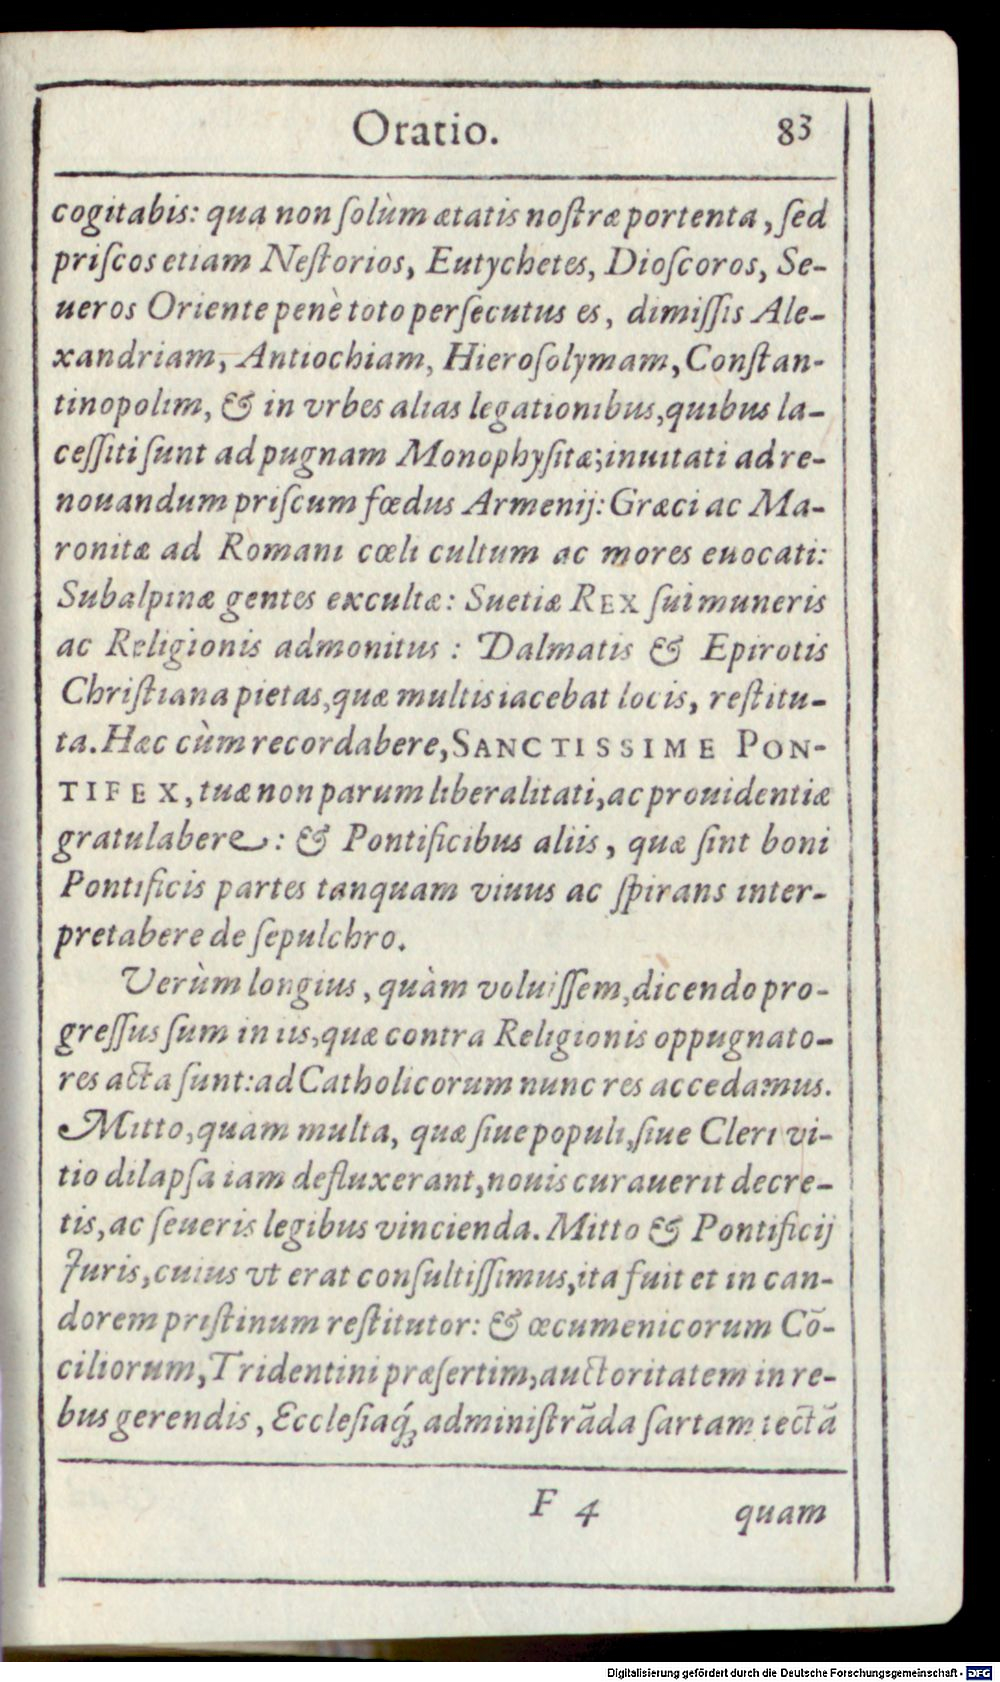 Oratio. 83
cogitabis: qua non ſolùm ætatis noſtræ portenta, ſed
priſcos etiam Neſtorios, Eutychetes, Dioſcoros, Se-
ueros Oriente penè toto perſecutus es, dimiſſis Ale-
xandriam, Antiochiam, Hieroſolymam, Conſtan-
tinopolim, & in vrbes alias legationibus, quibus la-
ceſſiti ſunt ad pugnam Monophyſitæ; inuitati ad re-
nouandum priſcum fœdus Armenij: Græci ac Ma-
ronitæ ad Romani cœli cultum ac mores euocati:
Subalpinæ gentes excultæ: Suetiæ REX ſui muneris
ac Religionis admonitus: Dalmatis & Epirotis
Chriſtiana pietas, quæ multis iacebat locis, reſtitu-
ta. Hæc cùm recordabere, SANCTISSIME PON-
TIFEX, tuæ non parum liberalitati, ac prouidentiæ
gratulabere: & Pontificibus aliis, quæ ſint boni
Pontificis partes tanquam viuus ac ſpirans inter-
pretabere de ſepulchro.
Verùm longius, quàm voluiſſem, dicendo pro-
greſſus ſum in iis, quæ contra Religionis oppugnato-
res acta ſunt: ad Catholicorum nunc res accedamus.
Mitto, quam multa, quæ ſiue populi, ſiue Cleri vi-
tio dilapſa iam defluxerant, nouis curauerit decre-
tis, ac ſeueris legibus vincienda. Mitto & Pontificij
Juris, cuius vt erat conſultiſſimus, ita fuit et in can-
dorem priſtinum reſtitutor: & œcumenicorum Cõ-
ciliorum, Tridentini præſertim, auctoritatem in re-
bus gerendis, Eccleſiaq́; adminiſtrãda ſartam tectã
F 4 quam
Digitalisierung gefördert durch die Deutsche Forschungsgemeinschaft - DFG